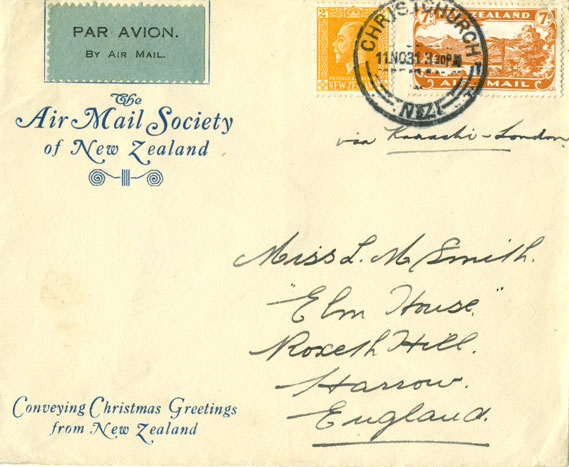 PAR AVION.
BY AIR MAIL.
The
Air Mail Society
of New Zealand
2
NEW ZEALAND
7D ZEALAND 7D
AIR MAIL
CHRISTCHURCH
11.NO31.3 30PM
N.Z.
via Karachi-London
Miss L. M. Smith.
"Elm House"
Roxeth Hill.
Harrow.
England.
Conveying Christmas Greetings
from New Zealand